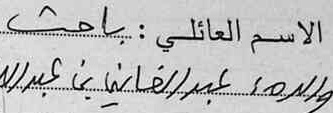 الاسم العائلي : باحث
والده، عبد الغاني بن عبد الله